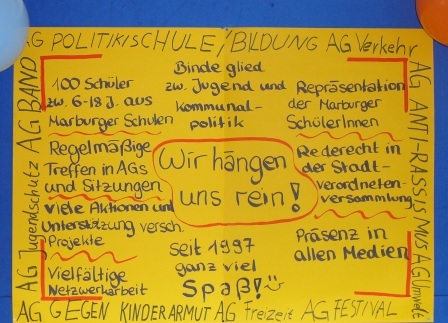 AG POLITIK/SCHULE/BILDUNG AG Verkehr
AG BAND
AG Jugendschutz
100 Schüler
zw. 6-18 J. aus
Marburger Schulen
Regelmäßige
Treffen in AGs
und Sitzungen
Viele Aktionen und
Unterstützung versch.
Projekte
Vielfältige
Netzwerkarbeit
Binde glied
zw. Jugend und
kommunal-
politik
Wir hängen
uns rein!
Seit 1997
ganz viel
Spaß!
Repräsentation
der Marburger
SchülerInnen
Rederecht in
der Stadt-
verordneten-
versammlung
Präsenz in
allen Medien
AG ANTI-RASSISMUS AG Umwelt
AG GEGEN KINDERARMUT AG Freizeit AG FESTIVAL